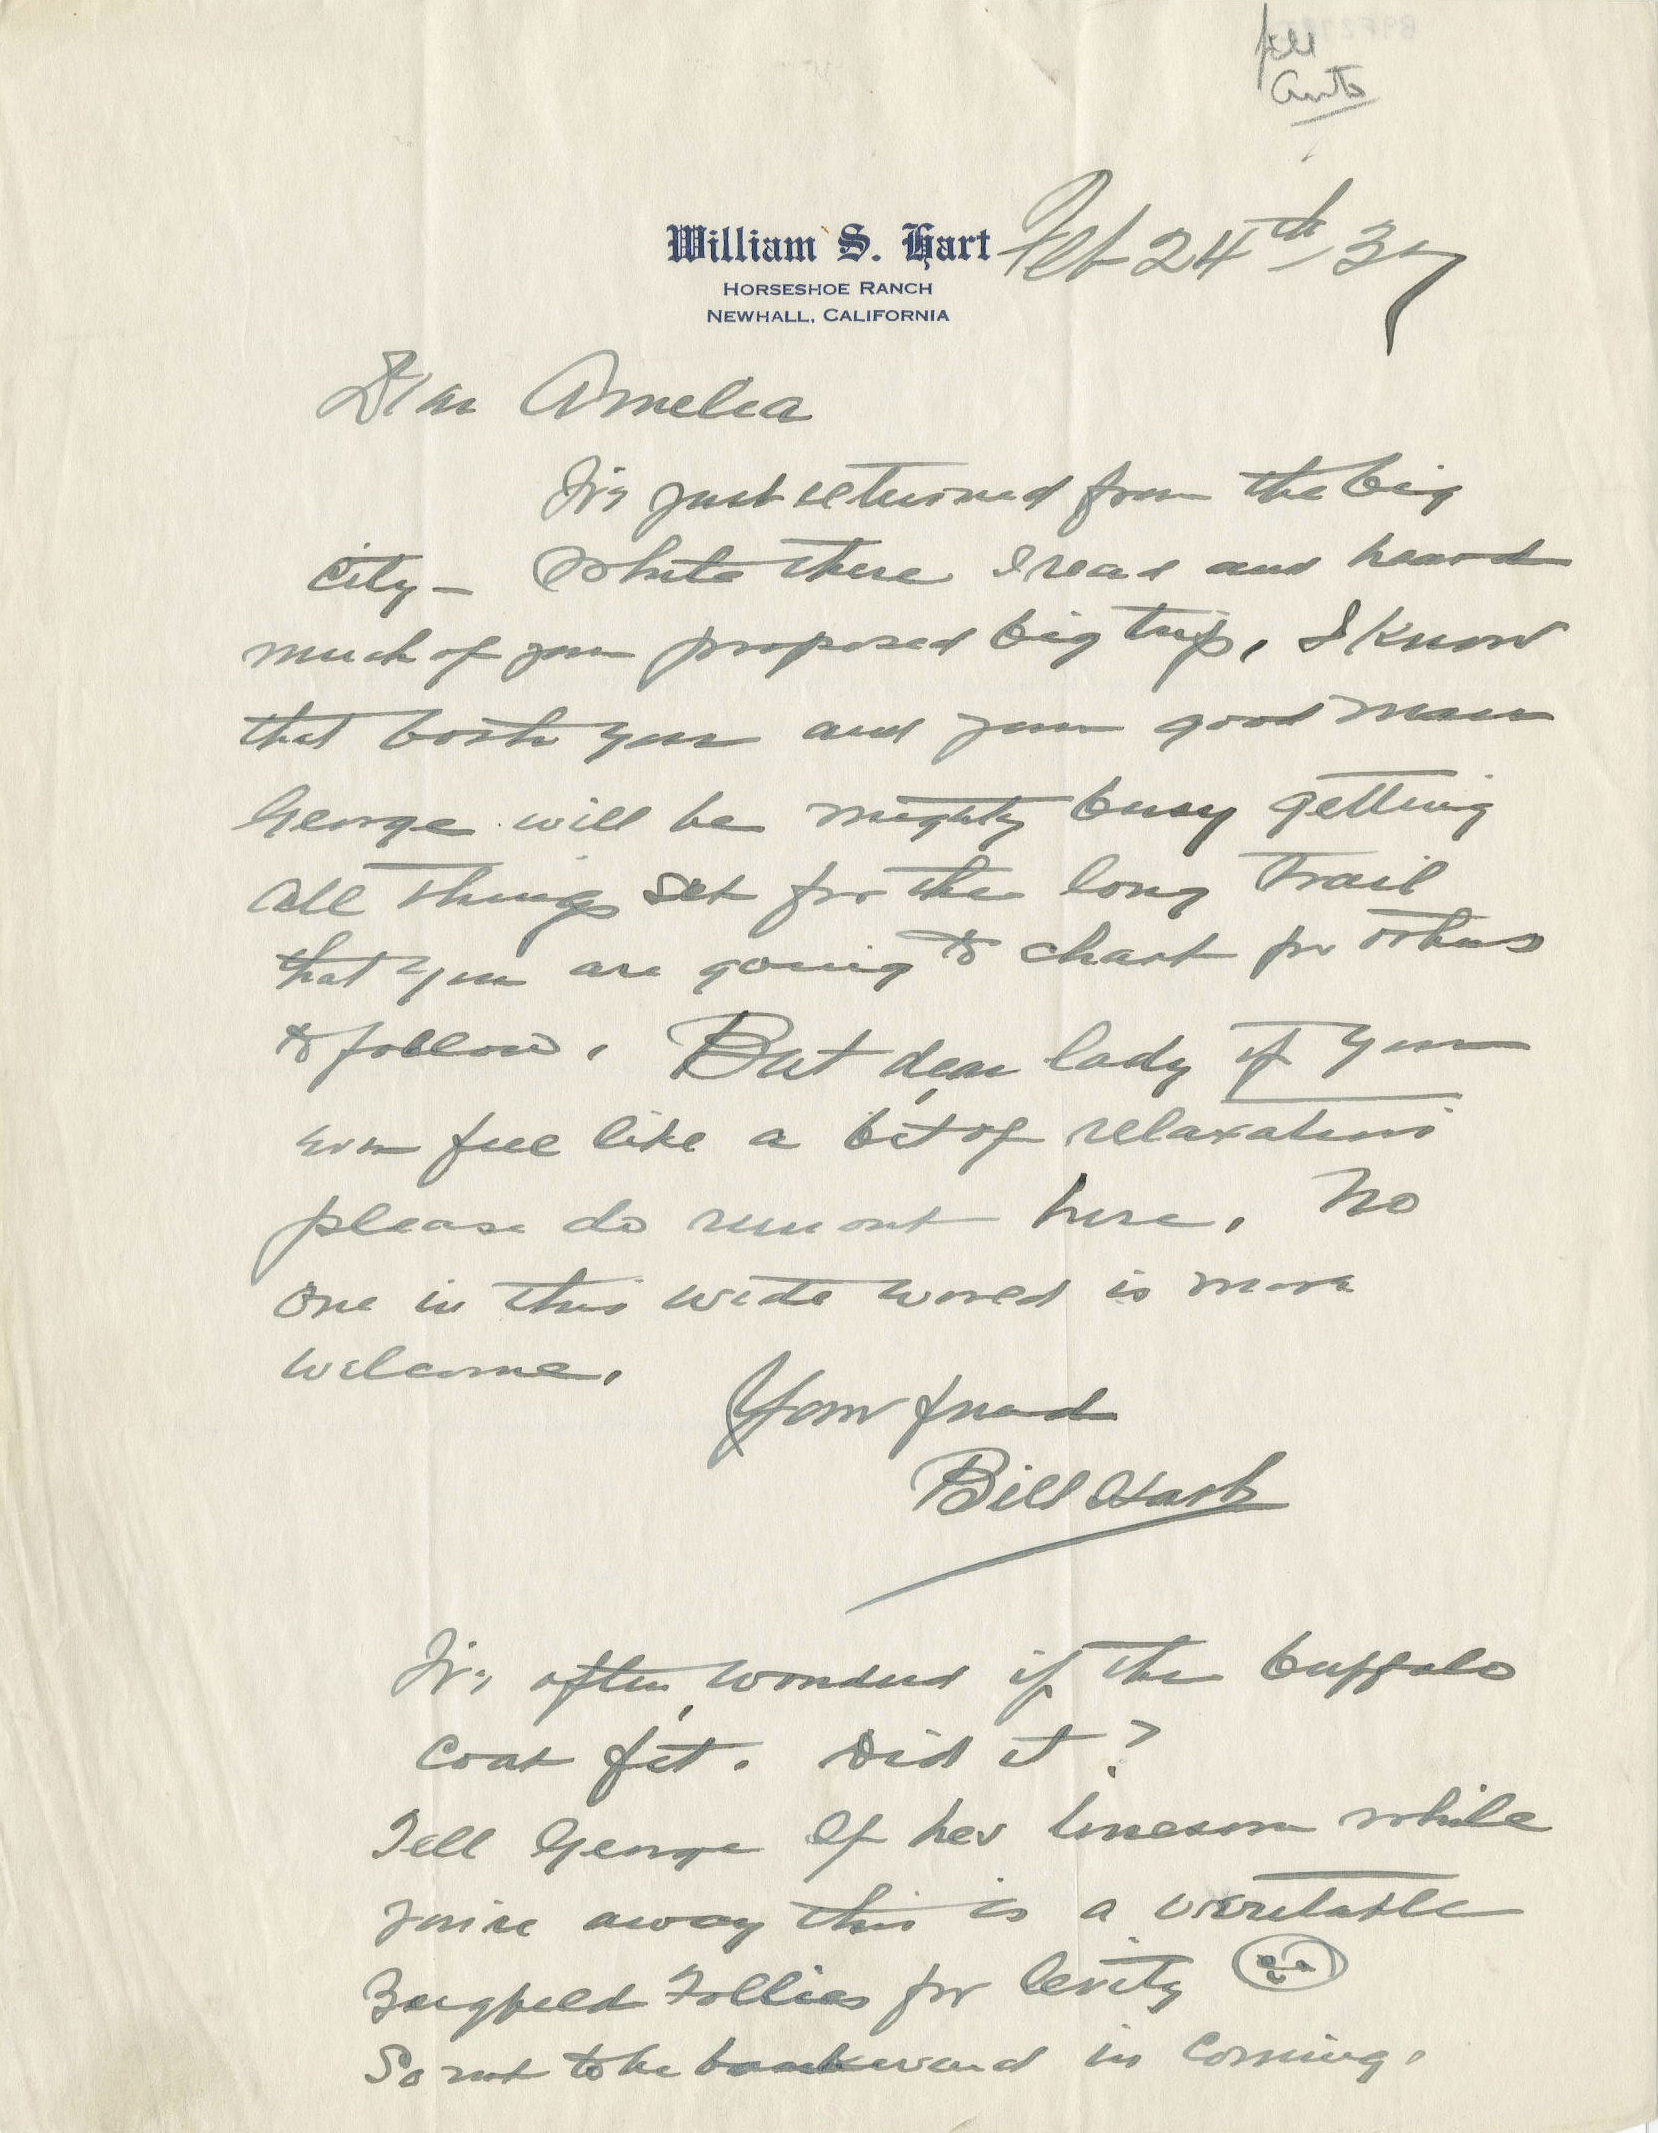 file
Auto
William S. Hart Feb 24th, 37
HORSESHOE RANCH
NEWHALL, CALIFORNIA
Dear Amelia
I've just returned from the big
city — While there I read and heard
much of your proposed big trip, I know
that both you and your good man
George will be mighty busy getting
all things set for the long trail
that you are going to chart for others
to follow. But dear lady if you
ever feel like a bit of relaxation
please do run out here. No
one in this wide world is more
welcome.
Your friend
Bill Hart
I've often wondered if the buffalo
coat fit. Did it?
Tell George If he's lonesome while
you're away this is a veritable
Zeigfield Follies for levity
So not to be backward in coming.